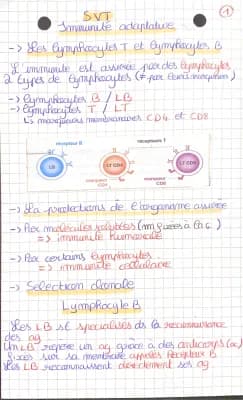 SVT
1
Immunité adaptative
-> Les Lymphocytes T et Lymphocytes B
L'immunité est assurée par des Lymphocytes
2 types de Lymphocytes (≠ par leurs récepteurs)
-> Lymphocytes B / LB
-> Lymphocytes T / LT
↳ marqueurs membranaires CD4 et CD8
récepteur B
récepteurs T
LB
LT CD4
LT CD8
marqueur CD4
marqueur CD8
-> La protections de l'organisme assurée
-> Par molécules solubles (nn fixées à la c)
=> immunité humorale
-> Par certains Lymphocytes
=> immunité cellulaire
-> Selection clonale
Lymphocyte B
Les LB st spécialisés ds la reconnaissance
des ag
Un LB repère un ag grâce à des anticorps (ac)
fixés sur sa membrane appelés Récepteurs B
Les LB reconnaissent directement ses ag